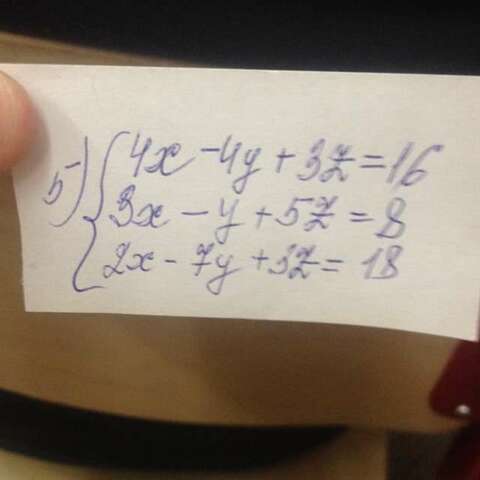 5) { 4x - 4y + 3z = 16
3x - y + 5z = 8
2x - 7y + 3z = 18